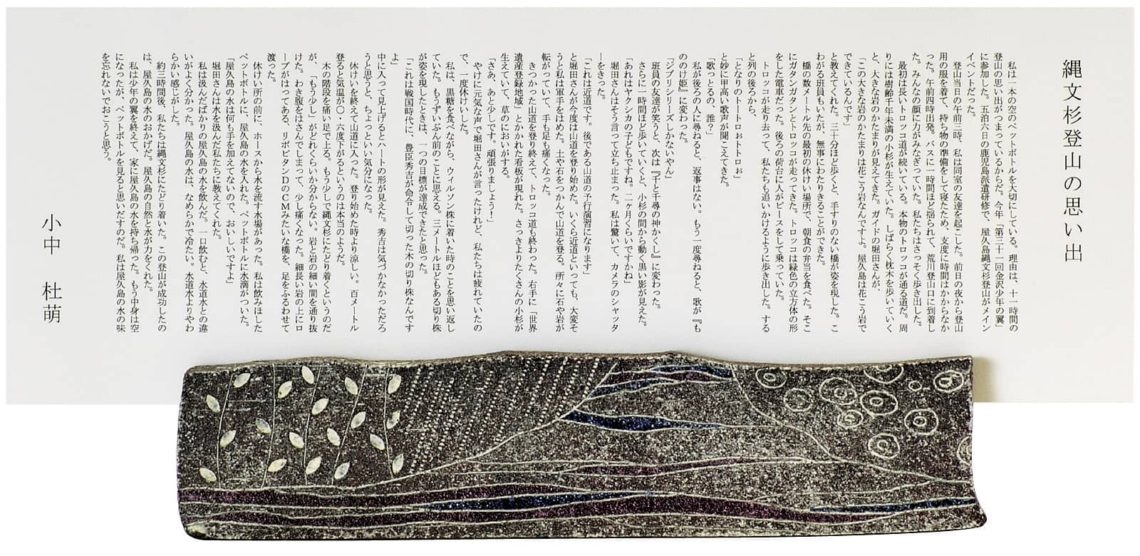 縄文杉登山の思い出
私は一本の空のペットボトルを大切にしている。理由は、十一時間の
登山の思い出がつまっているからだ。今年「第三十一回金沢少年の翼」
に参加した。五泊六日の鹿児島派遣研修で、屋久島縄文杉登山がメイン
イベントだった。
登山当日の午前三時、私は同室の友達を起こした。前日の夜から登山
用の服を着て、持ち物の準備をして寝たため、支度に時間はかからなか
った。午前四時出発。バスに一時間ほど揺られて、荒川登山口に到着し
た。みんなの顔に力がみなぎっていた。私たちはさっそく歩き出した。
最初は長いトロッコ道が続いている。本物のトロッコが通る道だ。周
りには樹齢千年未満の小杉が生えていた。しばらく枕木を歩いていく
と、大きな岩のかたまりが見えてきた。ガイドの堀田さんが、
「この大きな岩のかたまりは花こう岩なんですよ。屋久島は花こう岩で
できているんです」
と教えてくれた。三十分ほど歩くと、手すりのない橋が姿を現した。こ
わがる班員もいたが、無事にわたりきることができた。
橋の数メートル先の最初の休けい場所で、朝食の弁当を食べた。そこ
にガタンガタンとトロッコが走ってきた。トロッコは緑色の立方体の形
をした電車だった。後ろの荷台に人がピースをして乗っていた。
トロッコが走り去って、私たちも追いかけるように歩き出した。する
と列の後ろから、
「となりのトートロおトトロぉ」
と妙に甲高い歌声が聞こえてきた。
「歌っとるの、誰？」
私が後ろの人に尋ねると、返事はない。もう一度尋ねると、歌が『も
ののけ姫』に変わった。
「ジブリシリーズしかないやん」
班員の友達が笑うと、次は『千と千尋の神かくし』に変わった。
さらに一時間ほど歩いていくと、小杉の間から動く黒い影が見えた。
「あれはヤクシカの子どもですね。二か月くらいですかね」
堀田さんはそう言って立ち止まった。私は驚いて、カメラのシャッタ
ーをきった。
「これは近道です。後である山道の予行演習になります」
と堀田さんが今度は山道を登り始めた。いくら近道といっても、大変そ
うと私は弱音をはき始めた。土や石をつかんで山道を登る。所々に石や岩が
転がっていて、手も足も痛くなった。
きつかった山道を登り終えて、トロッコ道も終わった。右手に「世界
遺産登録地域」とかかれた看板が現れた。さっきよりたくさんの小杉が
生えていて、草のにおいがする。
「さあ、あと少しです。頑張りましょう！」
やけに元気な声で堀田さんが言ったけれど、私たちは疲れていたの
で、一度休けいした。
私は、黒糖を食べながら、ウイルソン株に着いた時のことを思い返し
ていた。もうずいぶん前のことに思える。三メートルほどもある切り株
が姿を現したときは、一つの目標が達成できたと思った。
「これは戦国時代に、豊臣秀吉が命令して切った木の切り株なんです
よ」
中に入って見上げるとハートの形が見えた。秀吉は気づかなかっただろ
うと思うと、ちょっといい気分になった。
休けいを終えて山道に入った。登り始めた時より涼しい。百メートル
登ると気温が〇・六度下がるというのは本当のようだ。
木の階段を痛い足で上る。もう少しで縄文杉にたどり着くというのだ
が、「もう少し」がどれくらいか分からない。岩と岩の細い間を通り抜
けた。わき腹をはさんでしまって、少し痛くなった。細長い岩の上にロ
ープがはってある、リポビタンＤのＣＭみたいな橋を、足をふるわせて
渡った。
休けい所の前に、ホースから水を流す水場があった。私は飲みほした
ペットボトルに、屋久島の水を入れた。ペットボトルに水滴がついた。
「屋久島の水は何も手を加えてないので、おいしいですよ」
堀田さんは水を汲んだ私たちに教えてくれた。
私は汲んだばかりの屋久島の水を飲んだ。一口飲むと、水道水との違
いがよく分かった。屋久島の水は、なめらかで冷たい。水道水よりやわ
らかい感じがした。
約三時間後、私たちは縄文杉にたどり着いた。この登山が成功したの
は、屋久島の水のおかげだ。屋久島の自然と水が力をくれた。
私は少年の翼を終えて、家に屋久島の水を持ち帰った。もう中身は空
になったが、ペットボトルを見ると思い出すのだ。私は屋久島の水の味
を忘れないでおこうと思う。
小中　杜萌